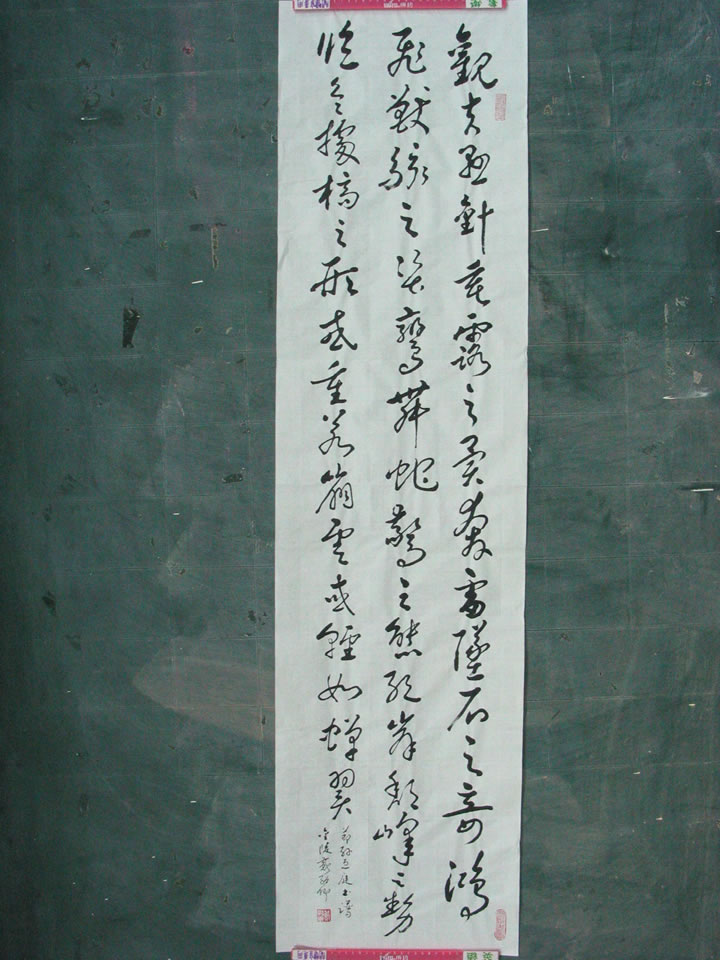 觀夫懸針垂露之異奔雷墜石之奇鴻
飛獸駭之資鸞舞蛇驚之態絕岸頹峰之勢
臨危據槁之形或重若崩雲或輕如蟬翼
節孫過庭書譜
金陵